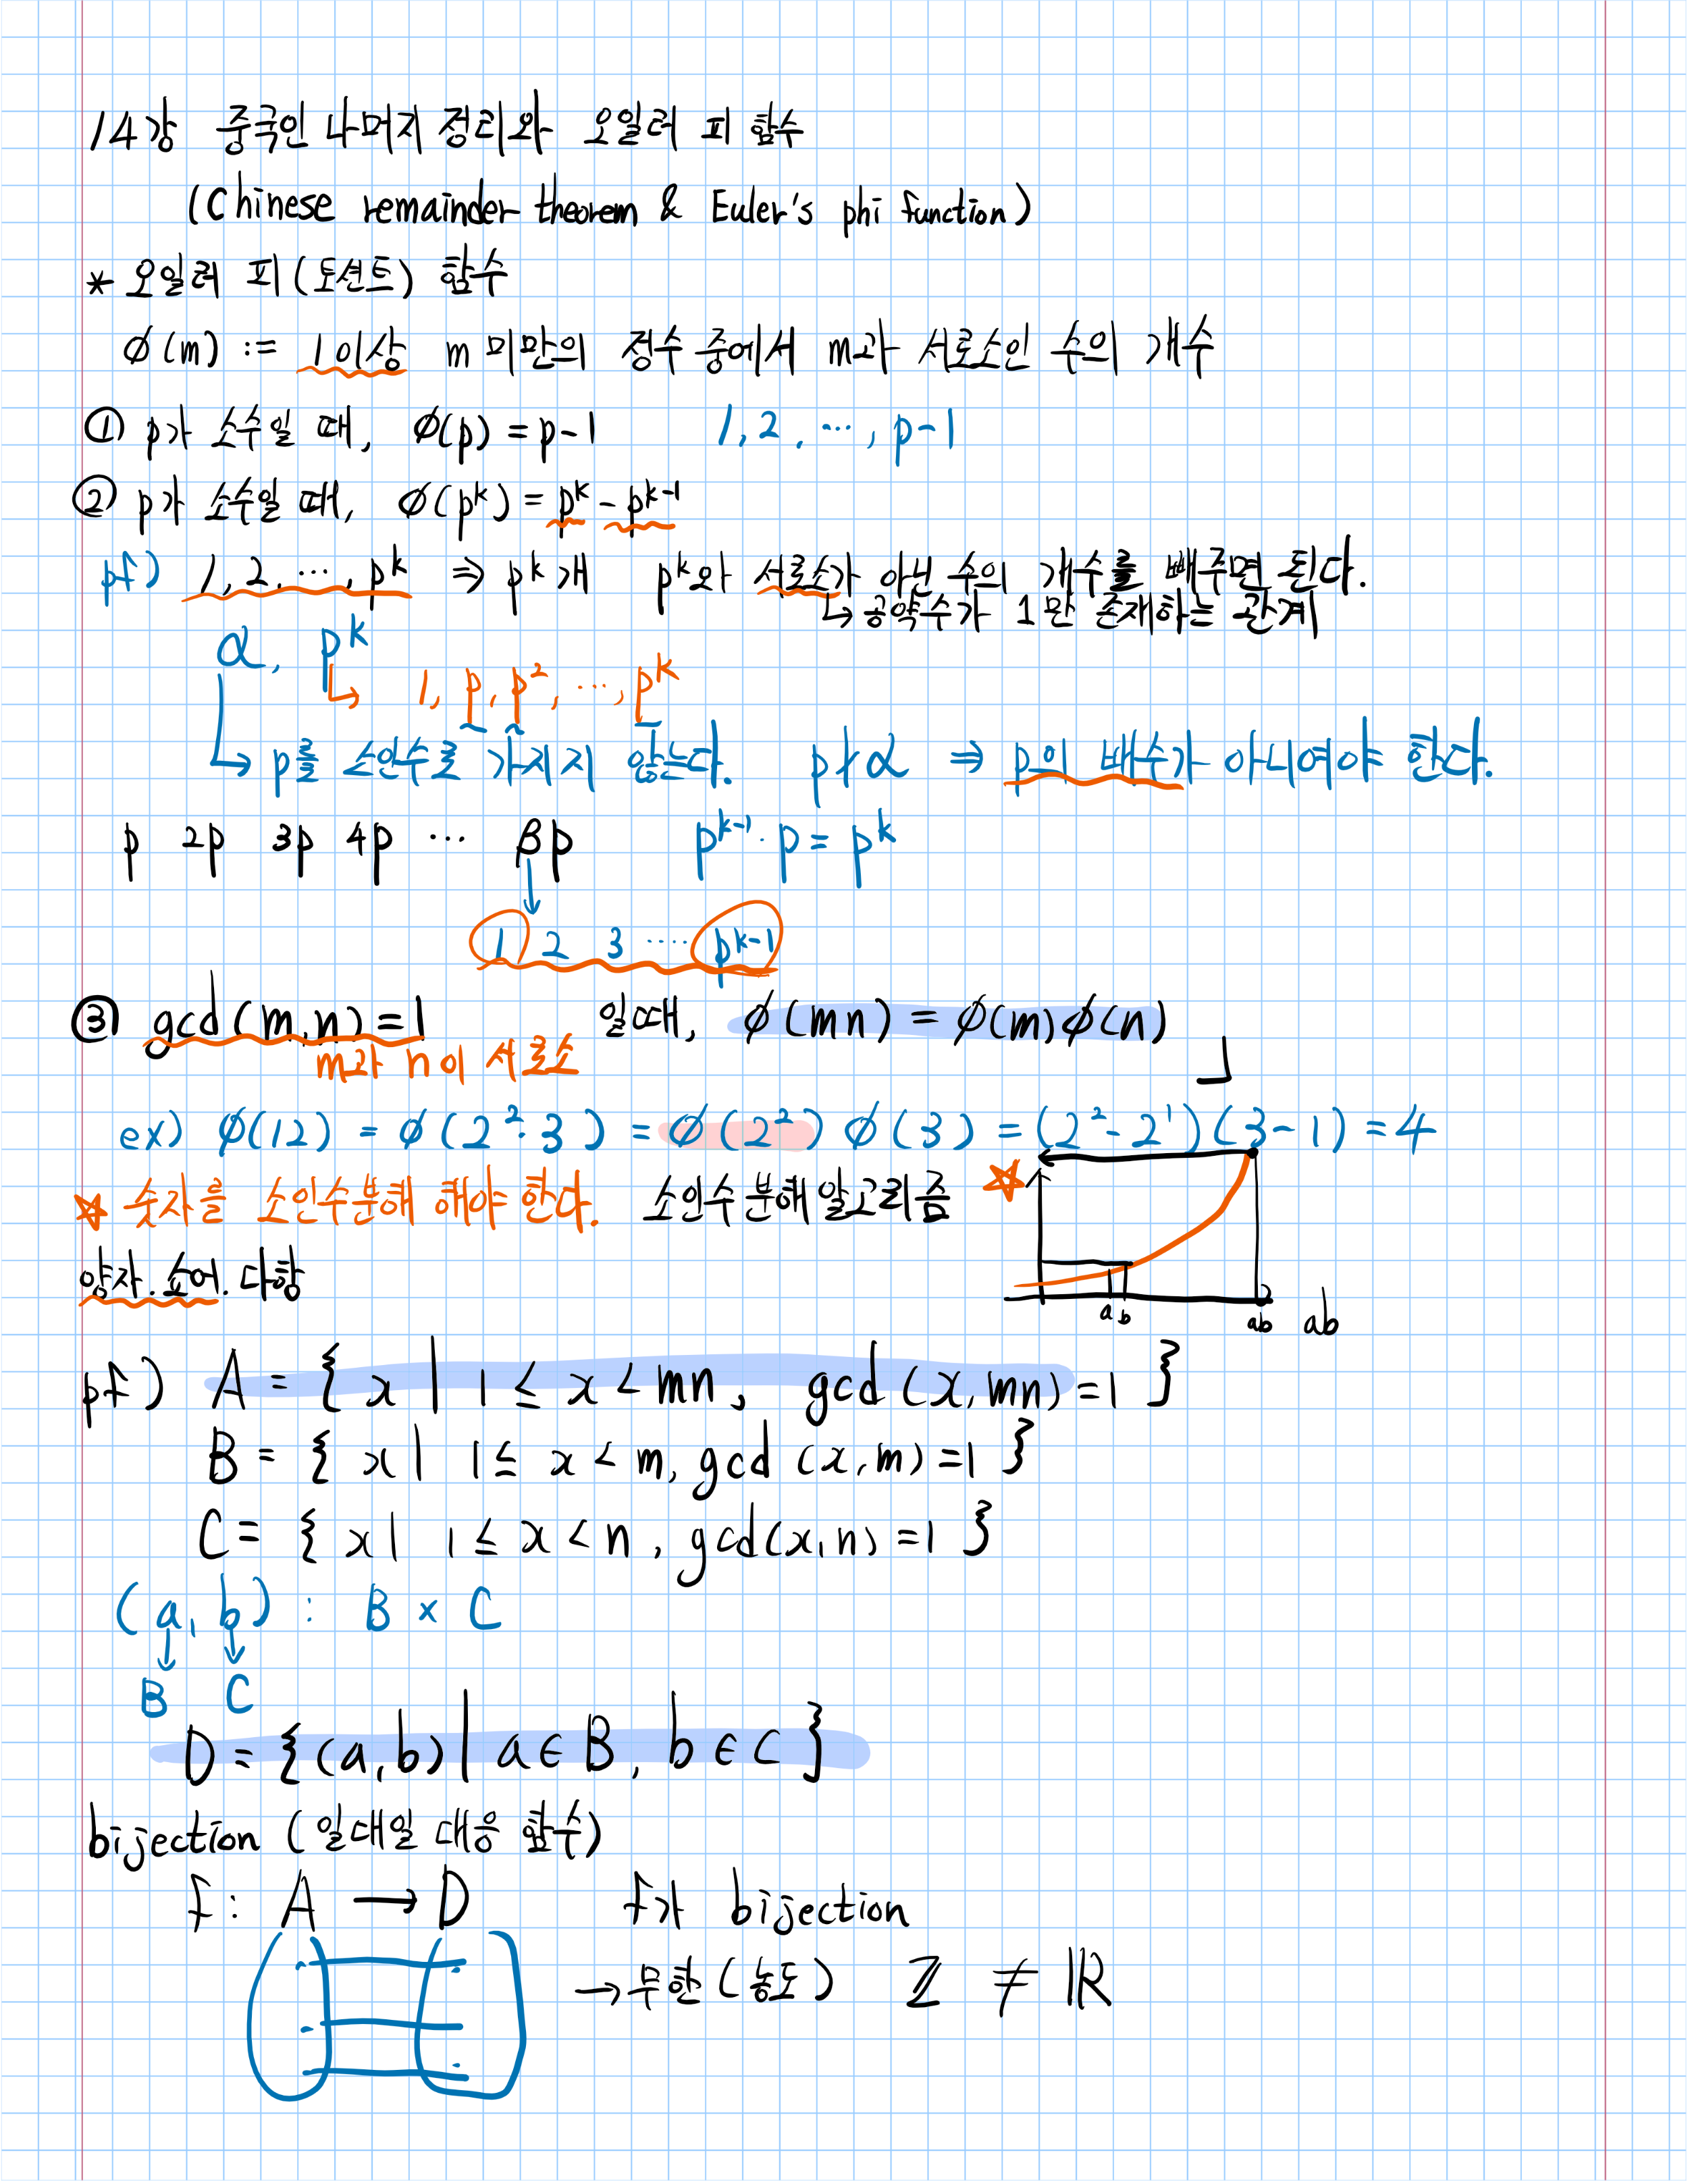 14강 중국인 나머지 정리와 오일러 피 함수
(Chinese remainder theorem & Euler's phi function)
* 오일러 피(토션트) 함수
ϕ(m) := 1이상 m 미만의 정수 중에서 m과 서로소인 수의 개수
① p가 소수일 때, ϕ(p) = p-1 1, 2, ⋯, p-1
② p가 소수일 때, ϕ(p^k) = p^k - p^(k-1)
pf) 1, 2, ⋯, p^k ⇒ p^k개 p^k와 서로소가 아닌 수의 개수를 빼주면 된다.
↳ 공약수가 1만 존재하는 관계
α, p^k
↳ 1, p, p², ⋯, p^k
↳ p를 소인수로 가지지 않는다. p∤α ⇒ p의 배수가 아니여야 한다.
p 2p 3p 4p ⋯ βp p^(k-1)·p = p^k
↓
1 2 3 ⋯⋯ p^(k-1)
③ gcd(m,n)=1 일때, ϕ(mn) = ϕ(m)ϕ(n)
m과 n이 서로소
┘
ex) ϕ(12) = ϕ(2²·3) = ϕ(2²) ϕ(3) = (2²-2¹)(3-1) = 4
☆ 숫자를 소인수분해 해야 한다. 소인수 분해 알고리즘 ☆
양자.쇼어.다항
a b ab ab
pf) A = { x | 1 ≤ x < mn, gcd(x,mn)=1 }
B = { x | 1 ≤ x < m, gcd(x,m)=1 }
C = { x | 1 ≤ x < n, gcd(x,n)=1 }
(a, b) : B × C
↓ ↓
B C
D = {(a,b) | a∈B, b∈C }
bijection (일대일 대응 함수)
f: A → D f가 bijection
→ 무한(농도) ℤ ≠ ℝ